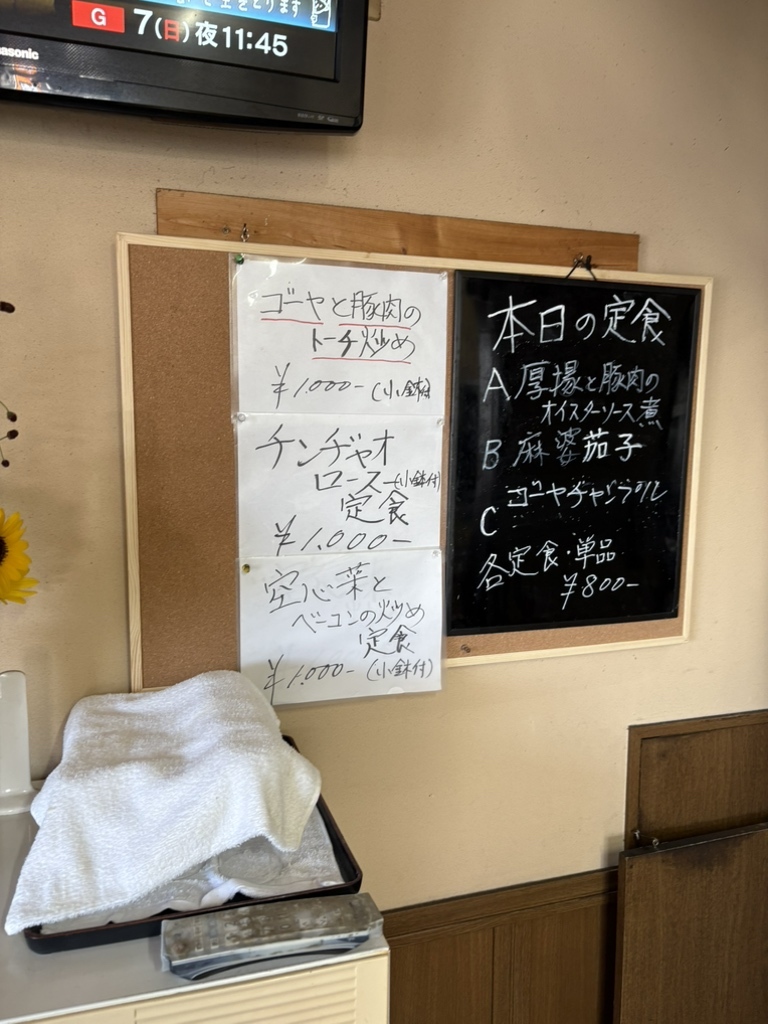 で空をとります
G 7(日)夜11:45
asonic
ゴーヤと豚肉の
トーチ炒め
¥1.000- (小鉢付
チンヂャオ
ロース (小鉢付)
定食
¥1.000-
空心菜と
ベーコンの炒め
定食
¥1.000- (小鉢付)
本日の定食
A 厚揚と豚肉の
オイスターソース煮
B 麻婆茄子
C ゴーヤチャンプル
各定食・単品
¥800-